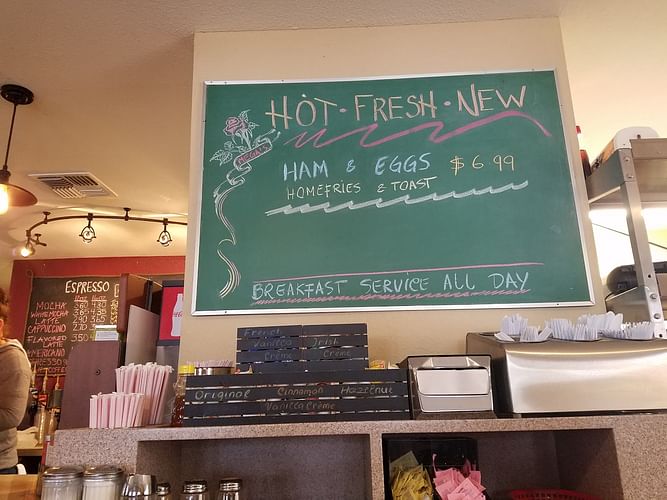 HOT · FRESH · NEW
HAM & EGGS $6.99
HOMEFRIES & TOAST
BREAKFAST SERVICE ALL DAY
ESPRESSO
MOCHA
WHITE MOCHA
LATTE
CAPPUCCINO
FLAVORED
LATTE
AMERICANO
French
Vanilla
Crème
Irish
Crème
Original
Cinnamon
Hazelnut
Vanilla Crème